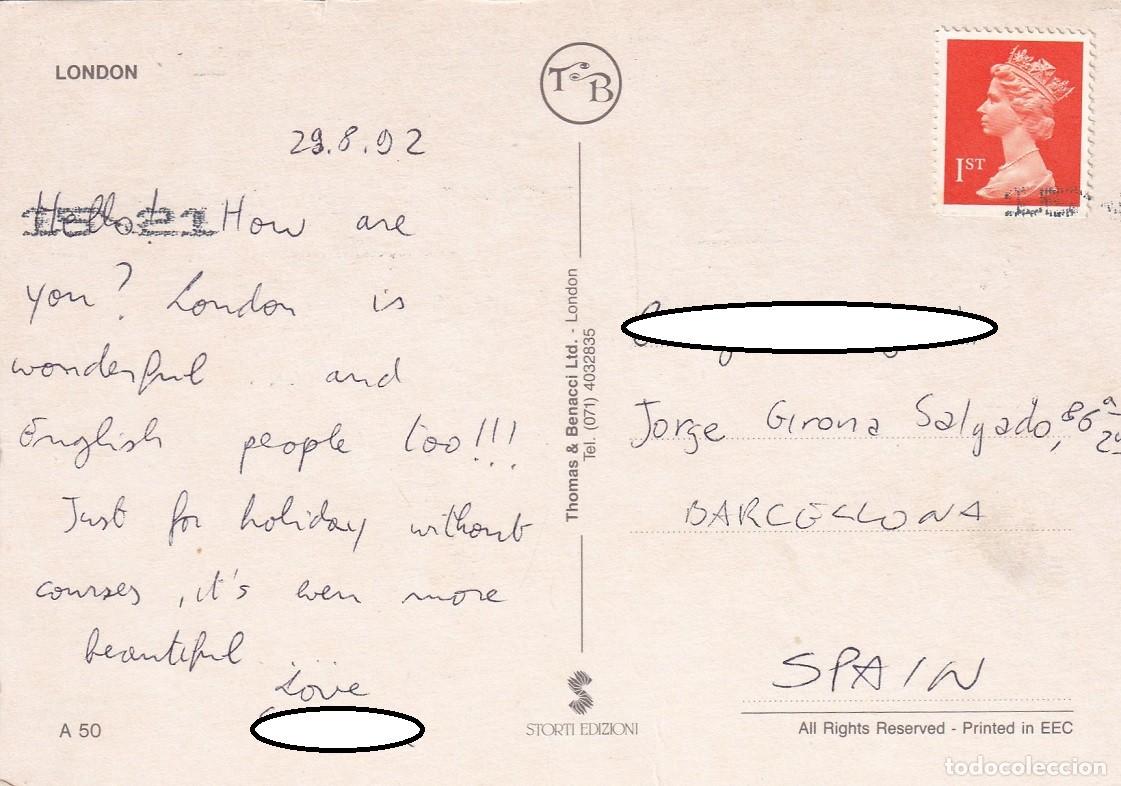 LONDON
29.8.92
Hello! How are
you? London is
wonderful ... and
English people too!!!
Just for holiday without
courses, it's even more
beautiful ...
Love
A 50
T B
Thomas & Benacci Ltd. - London
Tel. (071) 4032835
STORTI EDIZIONI
1ST
Jorge Girona Salgado, 86
BARCELLONA
SPAIN
All Rights Reserved - Printed in EEC
todocoleccion